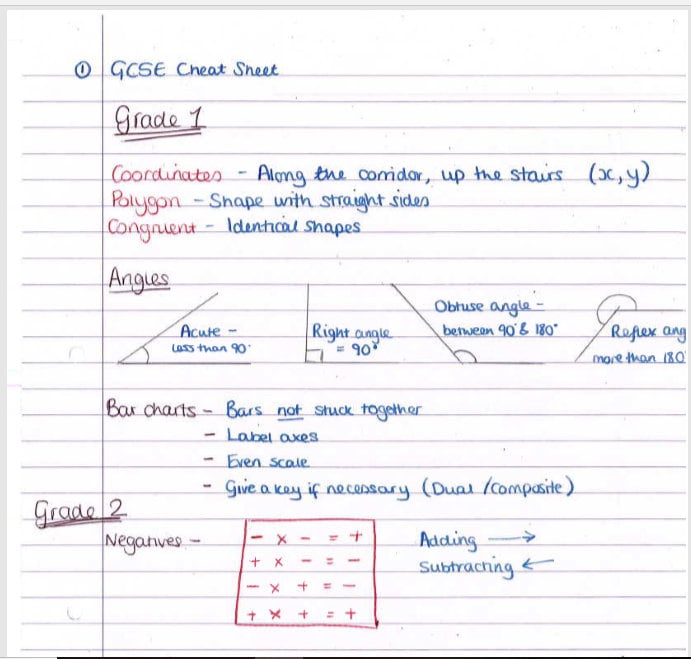 ① GCSE Cheat Sheet
Grade 1
Coordinates - Along the corridor, up the stairs (x,y)
Polygon - Shape with straight sides
Congruent - Identical shapes
Angles
Acute -
Less than 90°
Right angle
= 90°
Obtuse angle -
between 90° & 180°
Reflex ang
more than 180
Bar charts - Bars not stuck together
- Label axes
- Even scale
- Give a key if necessary (Dual/composite)
Grade 2
Negatives -
- × - = +
+ × - = -
- × + = -
+ × + = +
Adding →
Subtracting ←